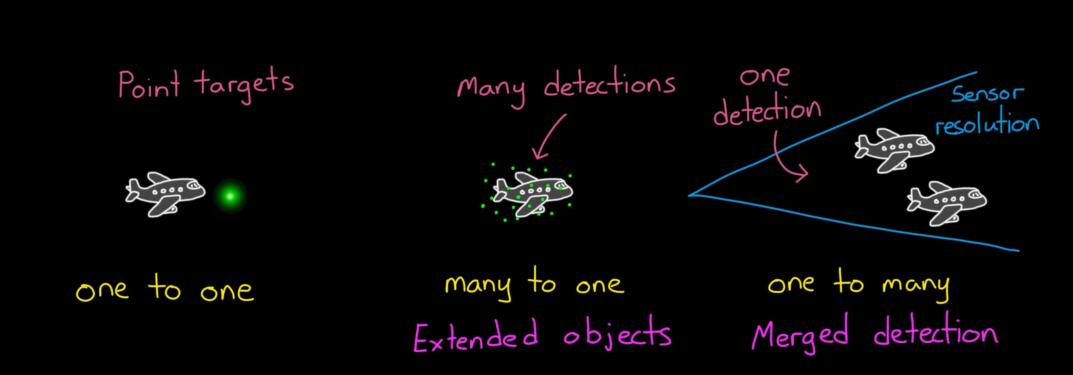 Point targets
one to one
Many detections
many to one
Extended objects
one
detection
Sensor
resolution
one to many
Merged detection